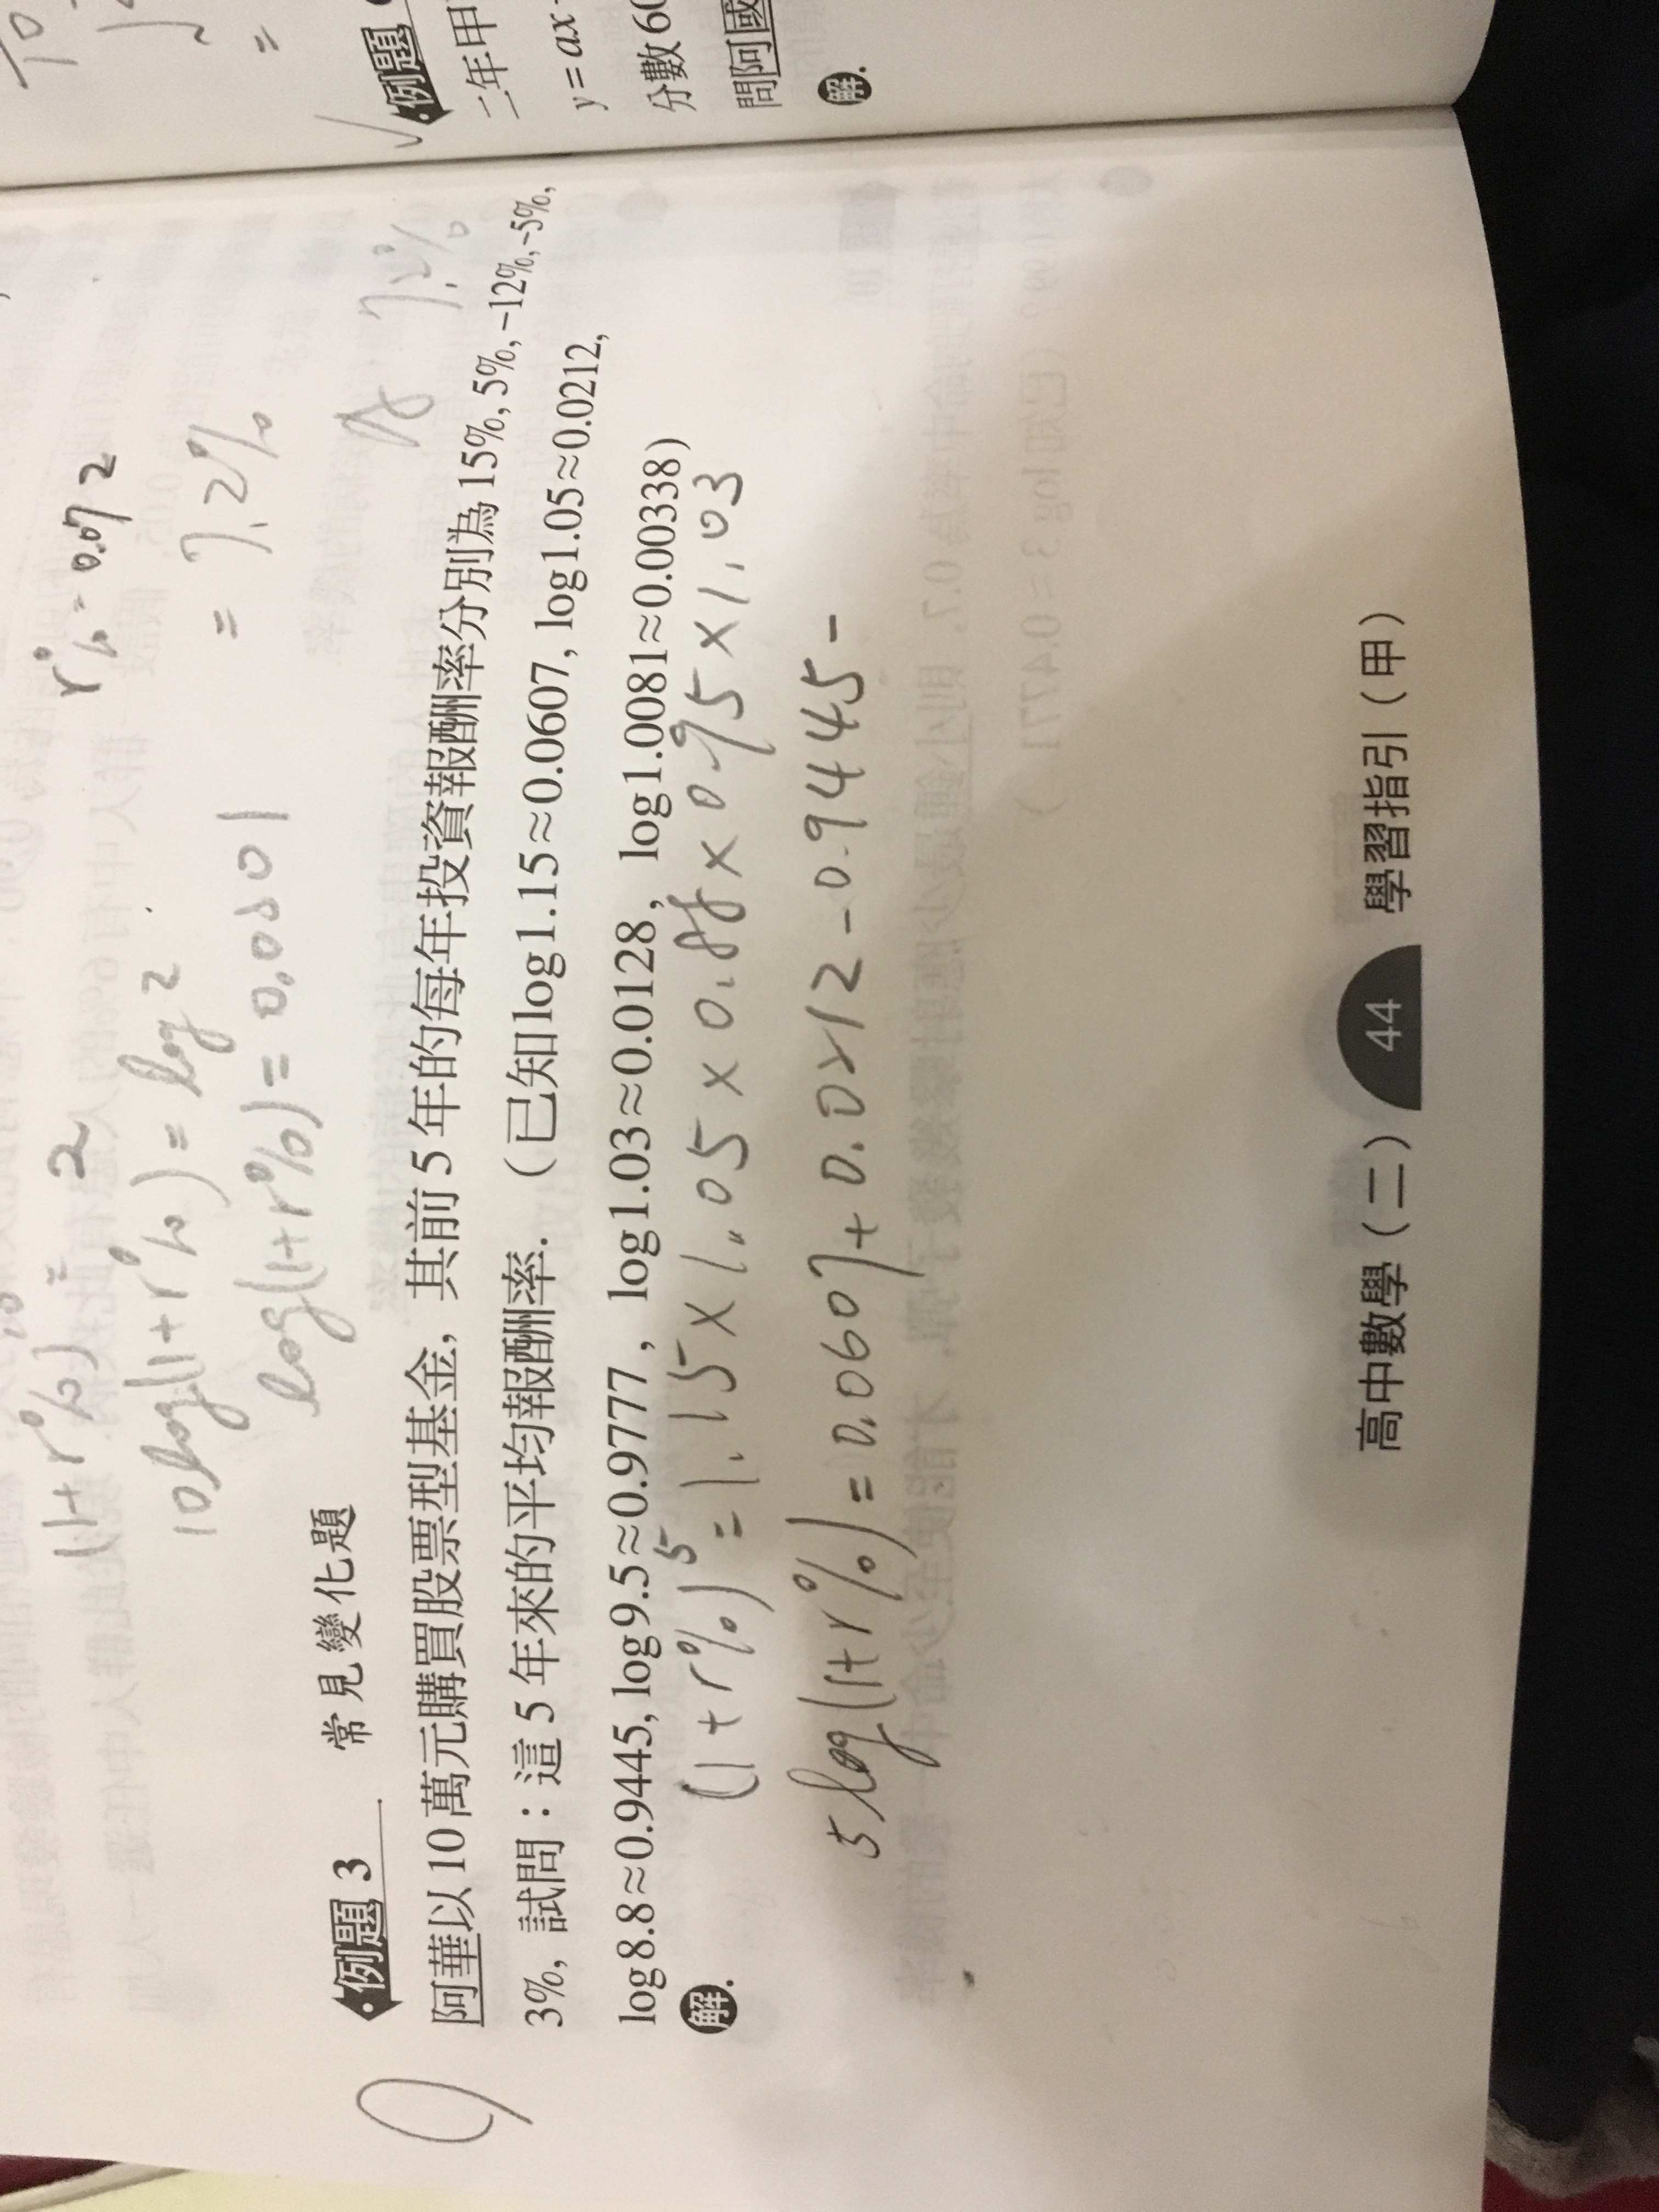 (1+r%) = 2
10log(1+r%)=log2
log(1+r%)=0.0301
r%=0.072
=7.2%
A 7.2%
例題 3 常見變化題
阿華以 10 萬元購買股票型基金, 其前 5 年的每年投資報酬率分別為 15%, 5%, −12%, −5%,
3%, 試問：這 5 年來的平均報酬率. （已知log1.15≈0.0607, log1.05≈0.0212,
log8.8≈0.9445, log9.5≈0.9777, log1.03≈0.0128, log1.0081≈0.00338)
解.
(1+r%)^5=1.15×1.05×0.88×0.95×1.03
5log(1+r%)=0.0607+0.0212-0.9445-
高中數學（二） 44 學習指引（甲）
例題
二年甲
y=ax
分數 60
問阿國
解.